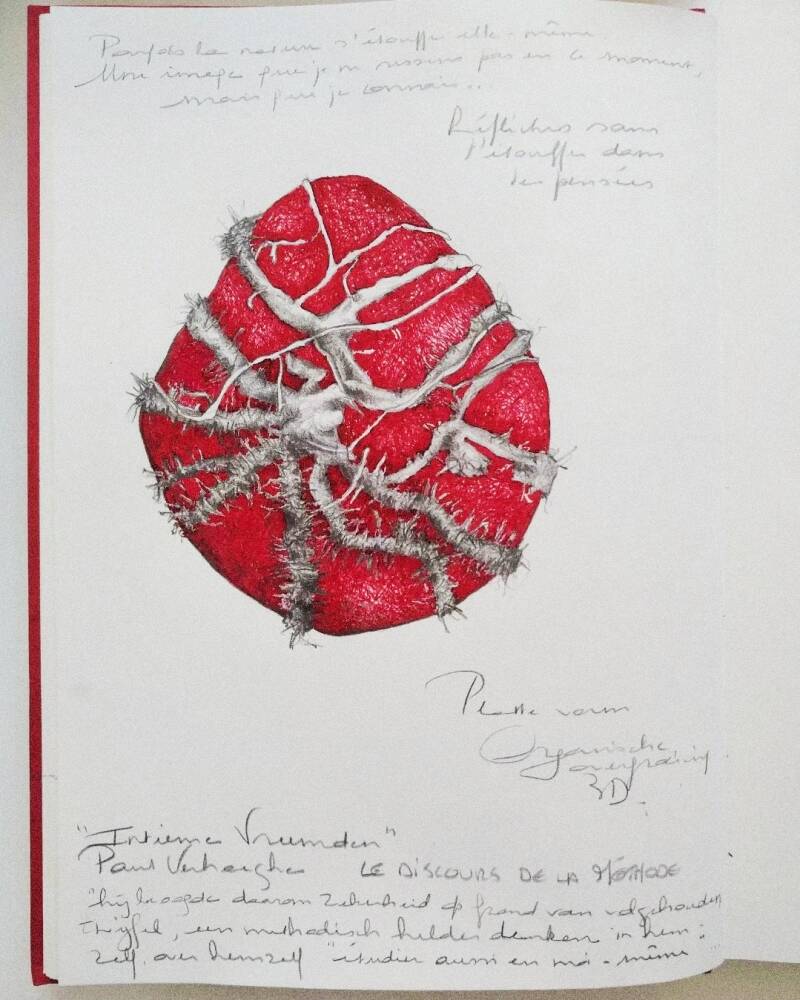 Parfois la nature s'étouffe elle-même.
Une image que je ne ressens pas en ce moment,
mais que je connais...
Réfléchir sans
s'étouffer dans
des pensées
vorm
Organische
overgroeiing
3D.
"Intieme Vreemden"
Paul Verhaeghe LE DISCOURS DE LA MÉTHODE
"hij beoogde daarom zekerheid op grond van volgehouden
twijfel, een methodisch helder denken in hem-
zelf, over hemzelf "étudier aussi en moi-même"